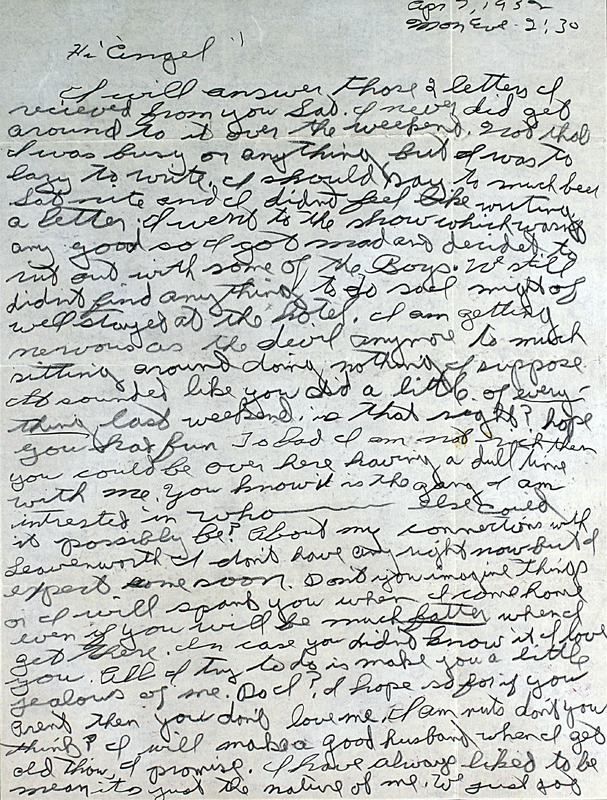 Apr 7, 1932
Mon Eve - 2:30
Hi Angel
I will answer those 2 letters I
recieved from you Sat. I never did get
around to it over the weekend. Not that
I was busy or anything but I was to
lazy to write, I should say to much beer
Sat nite and I didnt feel like writing
a letter. I went to the show which wasnt
any good so I got mad and decided to
run out with some of the Boys. We still
didnt find anything to do so I might of
well stayed at the hotel. I am getting
nervous as the devil anymore to much
sitting around doing nothing I suppose.
It sounded like you did a little of every-
thing last weekend, is that right? hope
you had fun To bad I am not rich then
you could be over here having a dull time
with me. You know it is the gang I am
intrested in who else could
it possibly be? About my connections with
Leavenworth I don't have any right now but I
expect some soon. Don't you imagine things
or I will spank you when I come home
even if you will be much fatter when I
get there. In case you didnt know it I love
you. All I try to do is make you a little
jealous of me. Do I? I hope so for if you
arent then you don't love me, I am nuts don't you
think? I will make a good husband when I get
old thou I promise. I have always liked to be
mean its just the nature of me. We just